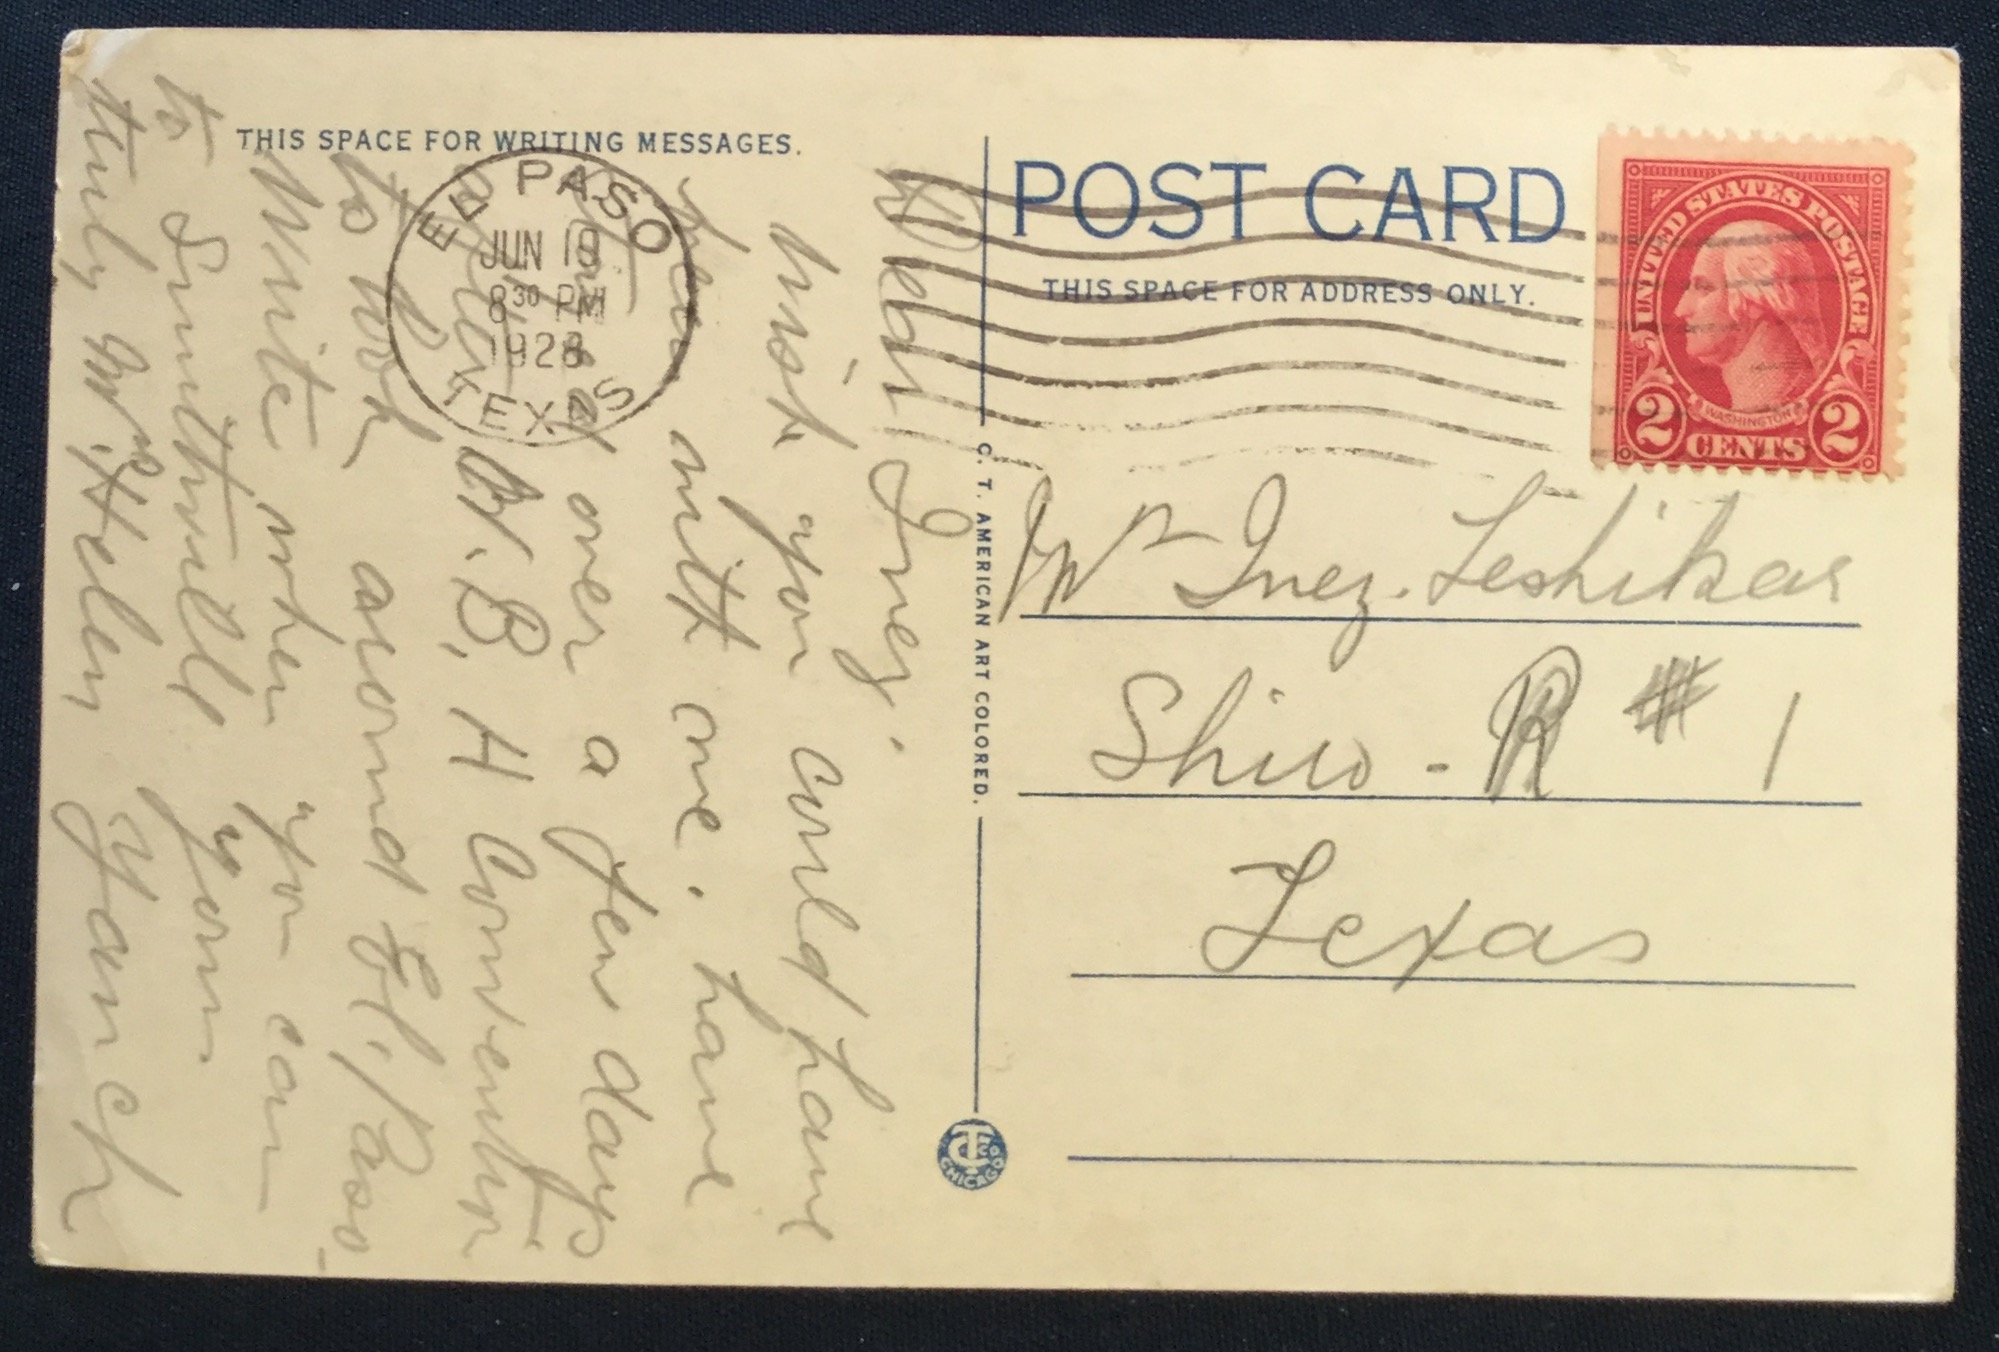 THIS SPACE FOR WRITING MESSAGES.
EL PASO
JUN 19
8 30 PM
1928
TEXAS
Dear Inez.
Wish you could have
been with me. have
over a few days
W. B. H Convention
to look around El, Paso.
Write when you can
to Smithville your
Mrs. Helen Yanch
C. T. AMERICAN ART COLORED.
POST CARD
THIS SPACE FOR ADDRESS ONLY.
UNITED STATES POSTAGE
WASHINGTON
2 CENTS 2
Inez. Leshikar
Shiro - R # 1
Texas
CHICAGO